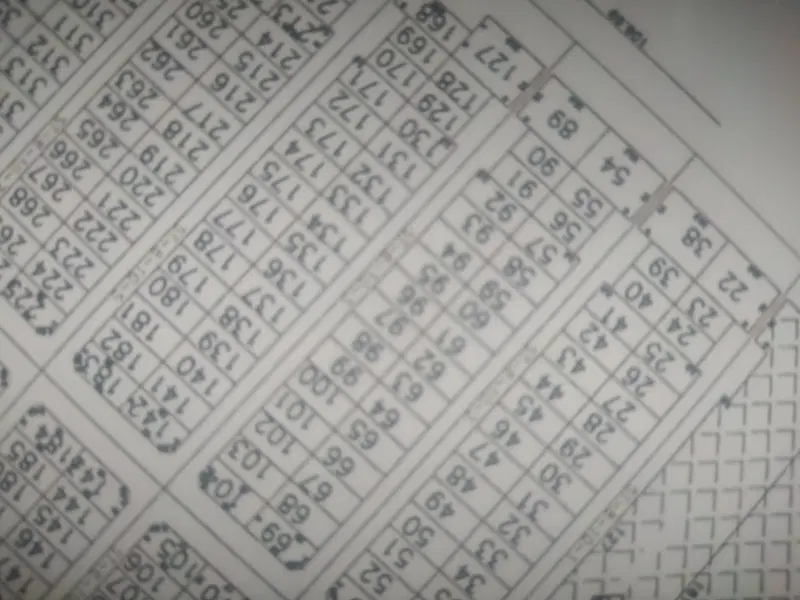 168
169
170
171
172
173
174
175
176
177
178
179
180
181
182
183
127
128
129
130
131
132
133
134
135
136
137
138
139
140
141
142
89
90
91
92
93
94
95
96
97
98
99
100
101
102
103
104
54
55
56
57
58
59
60
61
62
63
64
65
66
67
68
69
38
39
40
41
42
43
44
45
46
47
48
49
50
51
52
22
23
24
25
26
27
28
29
30
31
32
33
34
260
261
262
263
264
265
266
267
268
213
214
215
216
217
218
219
220
221
222
223
224
310
311
312
313
184
185
144
145
146
105
106